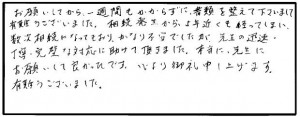 お願いしてから、一週間もかからずに、書類を整えて下さいまして
有難うございました。相続発生から、1年近くも経ってしまい、
数次相続になっており、かなり不安でしたが、先生の迅速・
丁寧・完璧な対応に助けて頂きました。本当に、先生に
お願いして良かったです。心より御礼申し上げます。
有難うございました。